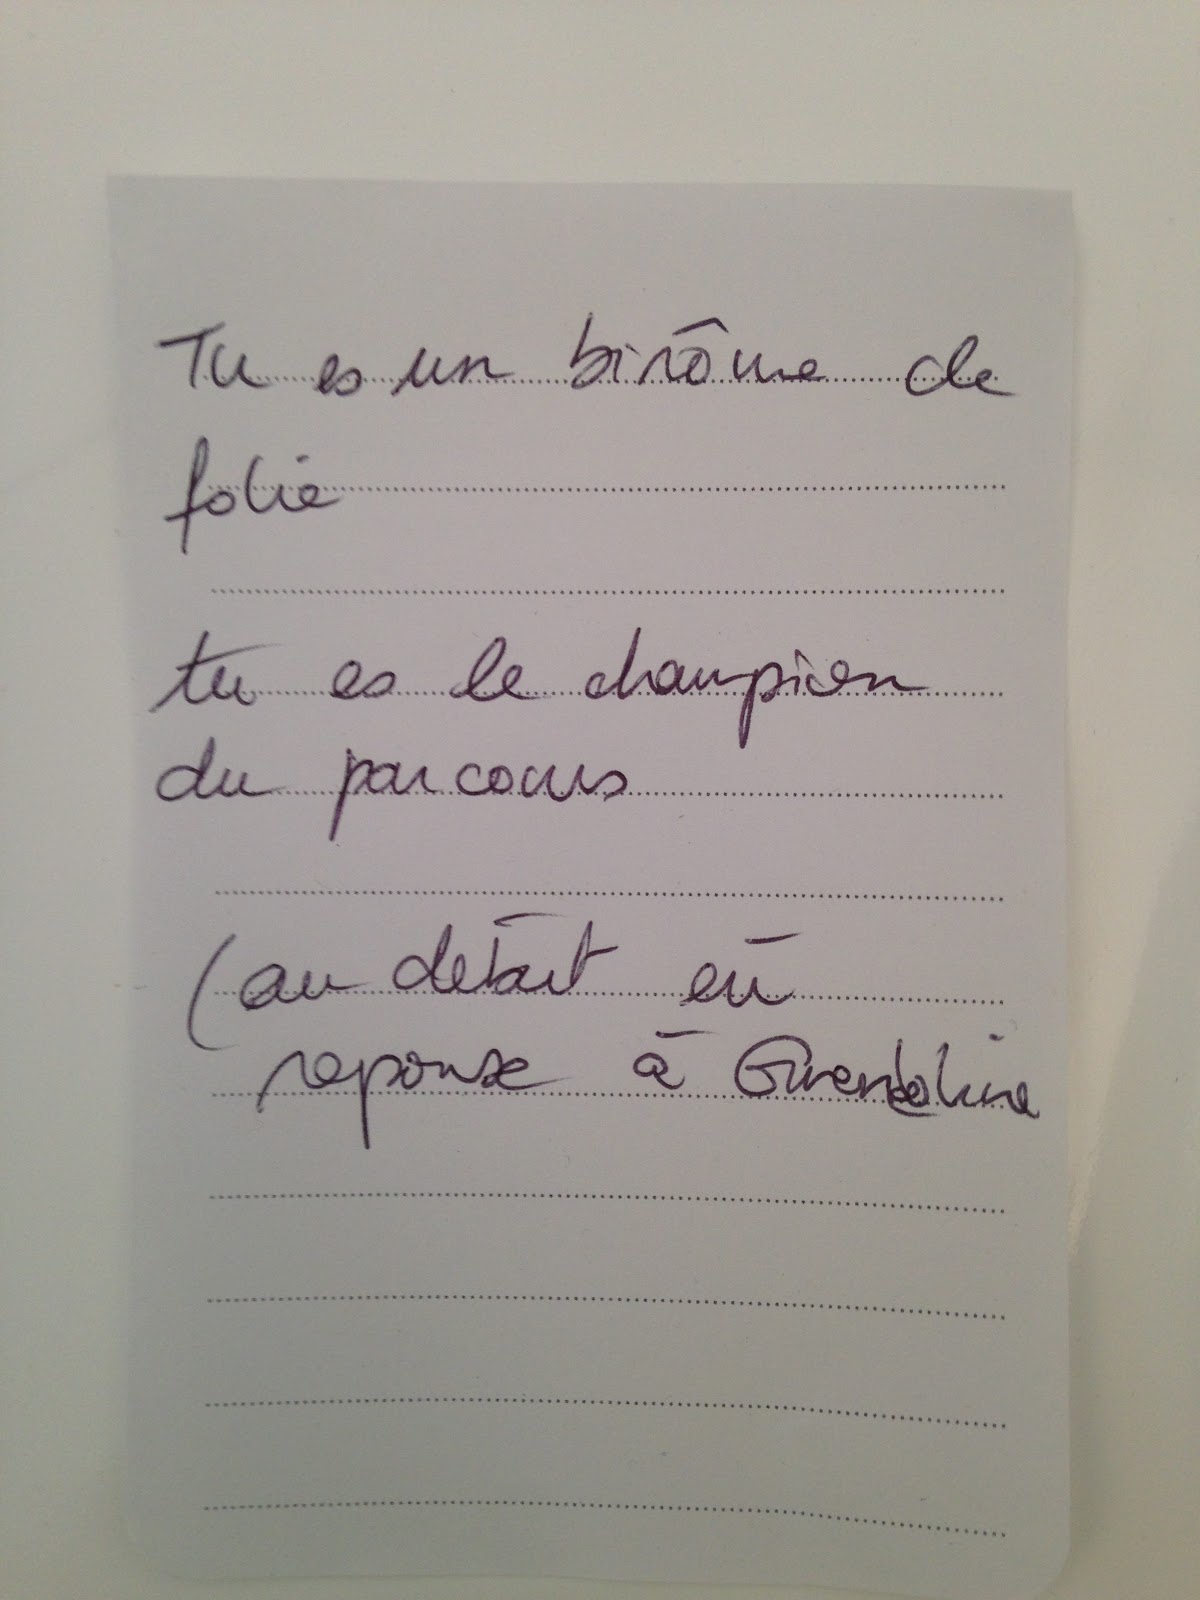 Tu es un binôme de
folie
tu es le champion
du parcours
(au début en
reponse à Gwendoline